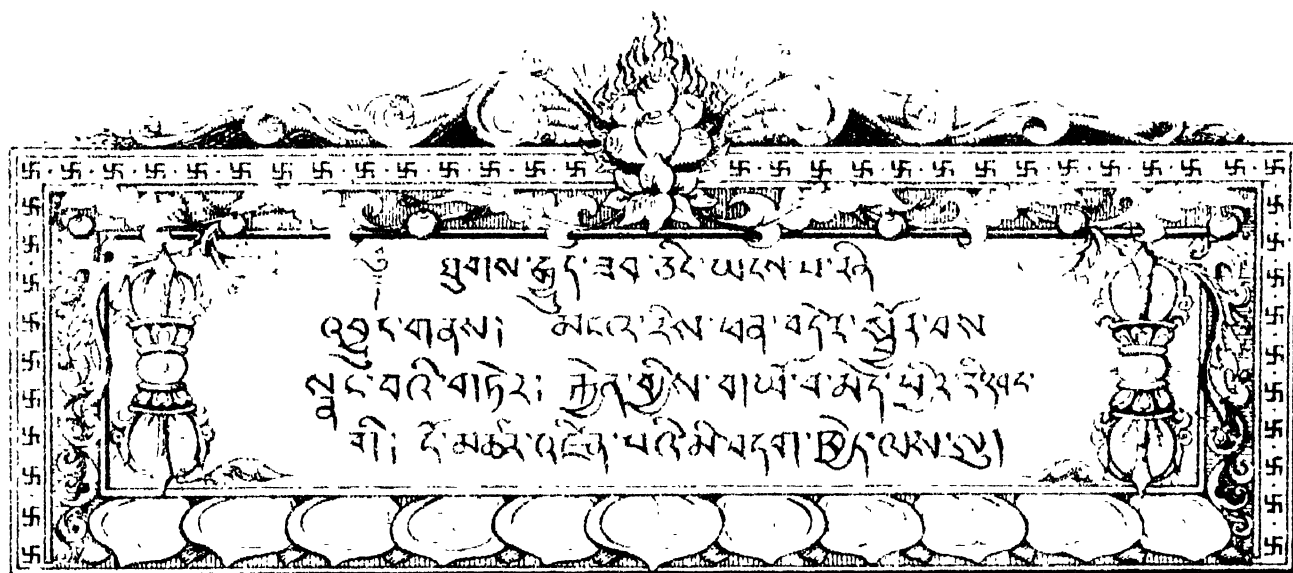 ཐུགས་རྒྱུད་ཟབ་ཅིང་ཡངས་པ་རིན་
འབྱུང་གནས། མངའ་རིས་ཕན་བདེར་སྦྱོར་བས
སྣང་བའི་གཏེར། རྐྱེན་གྱིས་གཡོ་བ་མེད་པར་རི་དབང་
གི། ངོ་མཚར་འཛིན་པའི་མི་བདག་ཁྱེད་ལས་སུ།